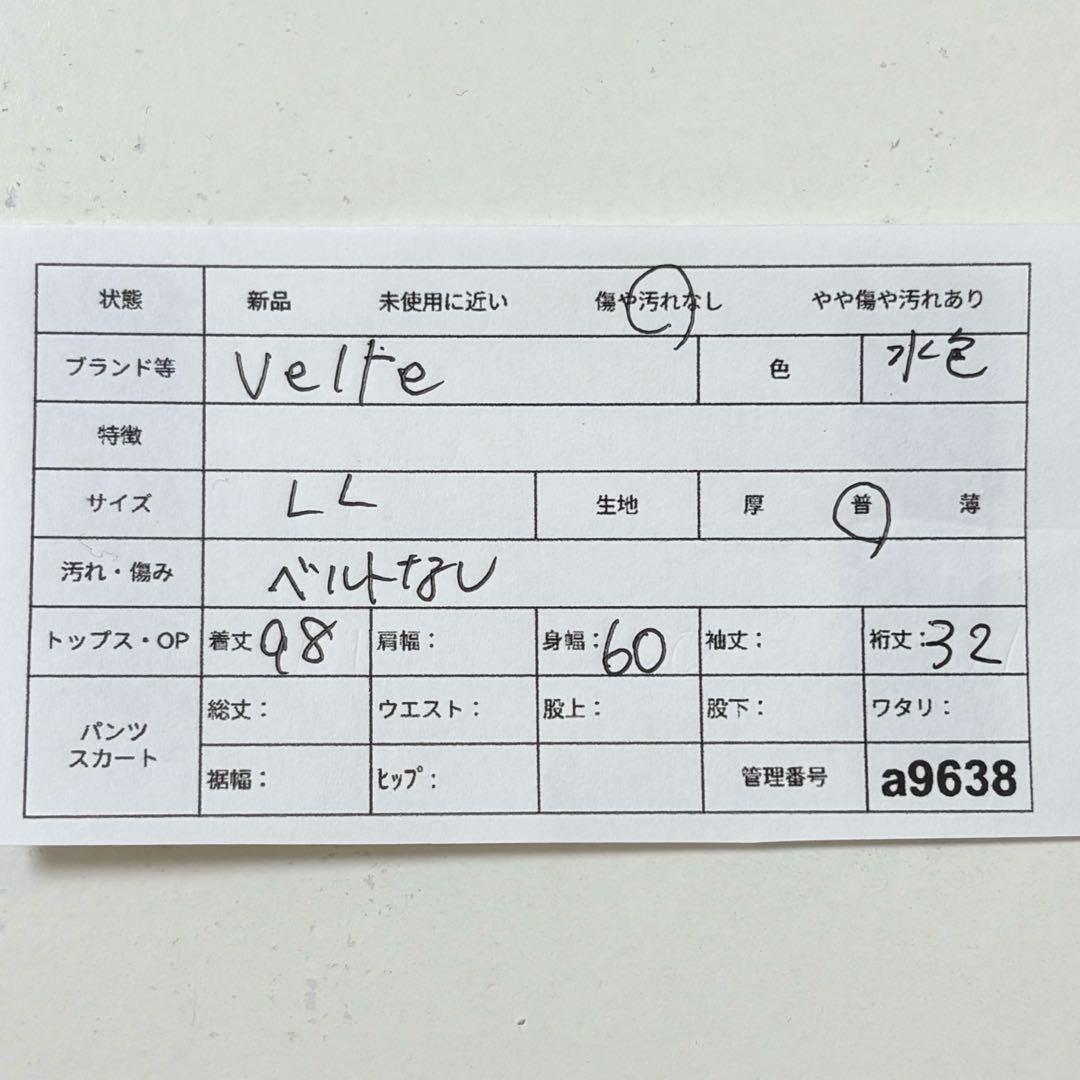 状態 新品 未使用に近い 傷や汚れなし やや傷や汚れあり
ブランド等 Velte 色 水色
特徴
サイズ LL 生地 厚 普 薄
汚れ・傷み ベルトなし
トップス・OP 着丈 98 肩幅: 身幅:60 袖丈: 裄丈:32
パンツ スカート 総丈: ウエスト: 股上: 股下: ワタリ:
裾幅: ヒップ: 管理番号 a9638